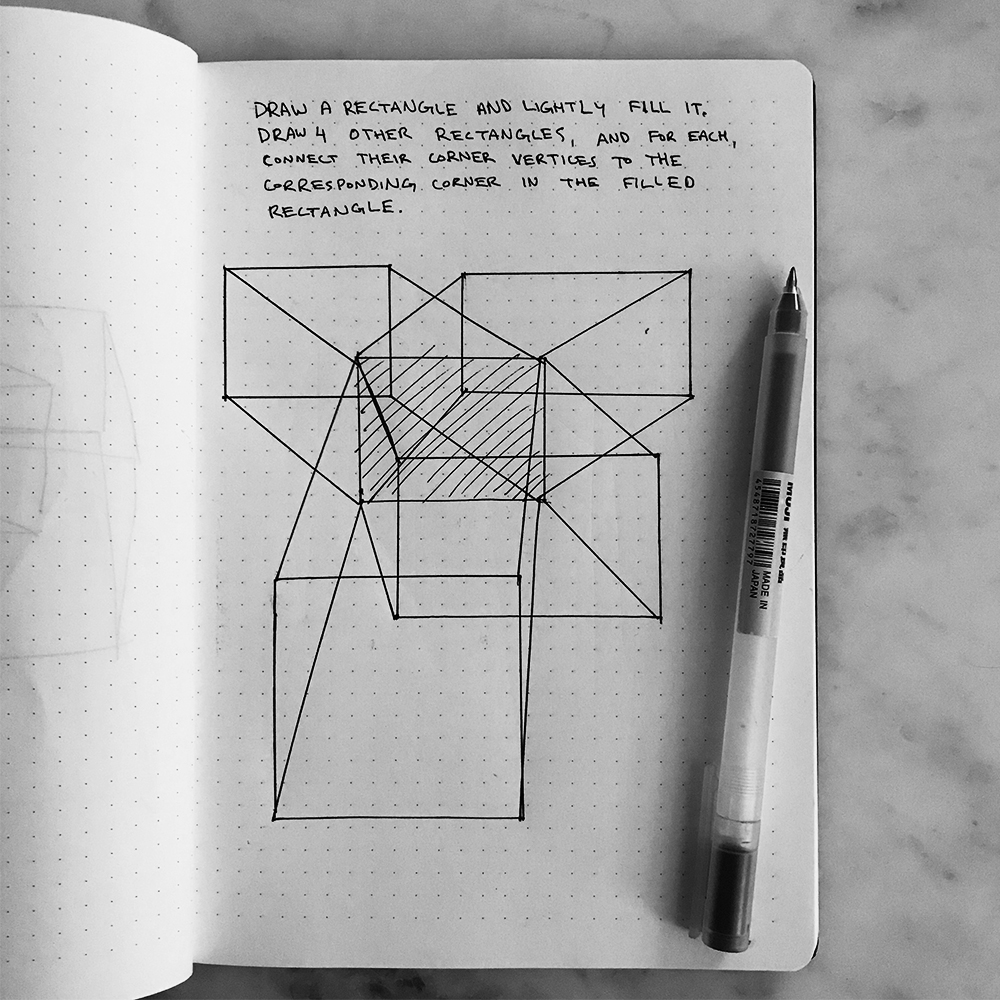 DRAW A RECTANGLE AND LIGHTLY FILL IT.
DRAW 4 OTHER RECTANGLES, AND FOR EACH,
CONNECT THEIR CORNER VERTICES TO THE
CORRESPONDING CORNER IN THE FILLED
RECTANGLE.
MUJI
4548718727797
MADE IN
JAPAN